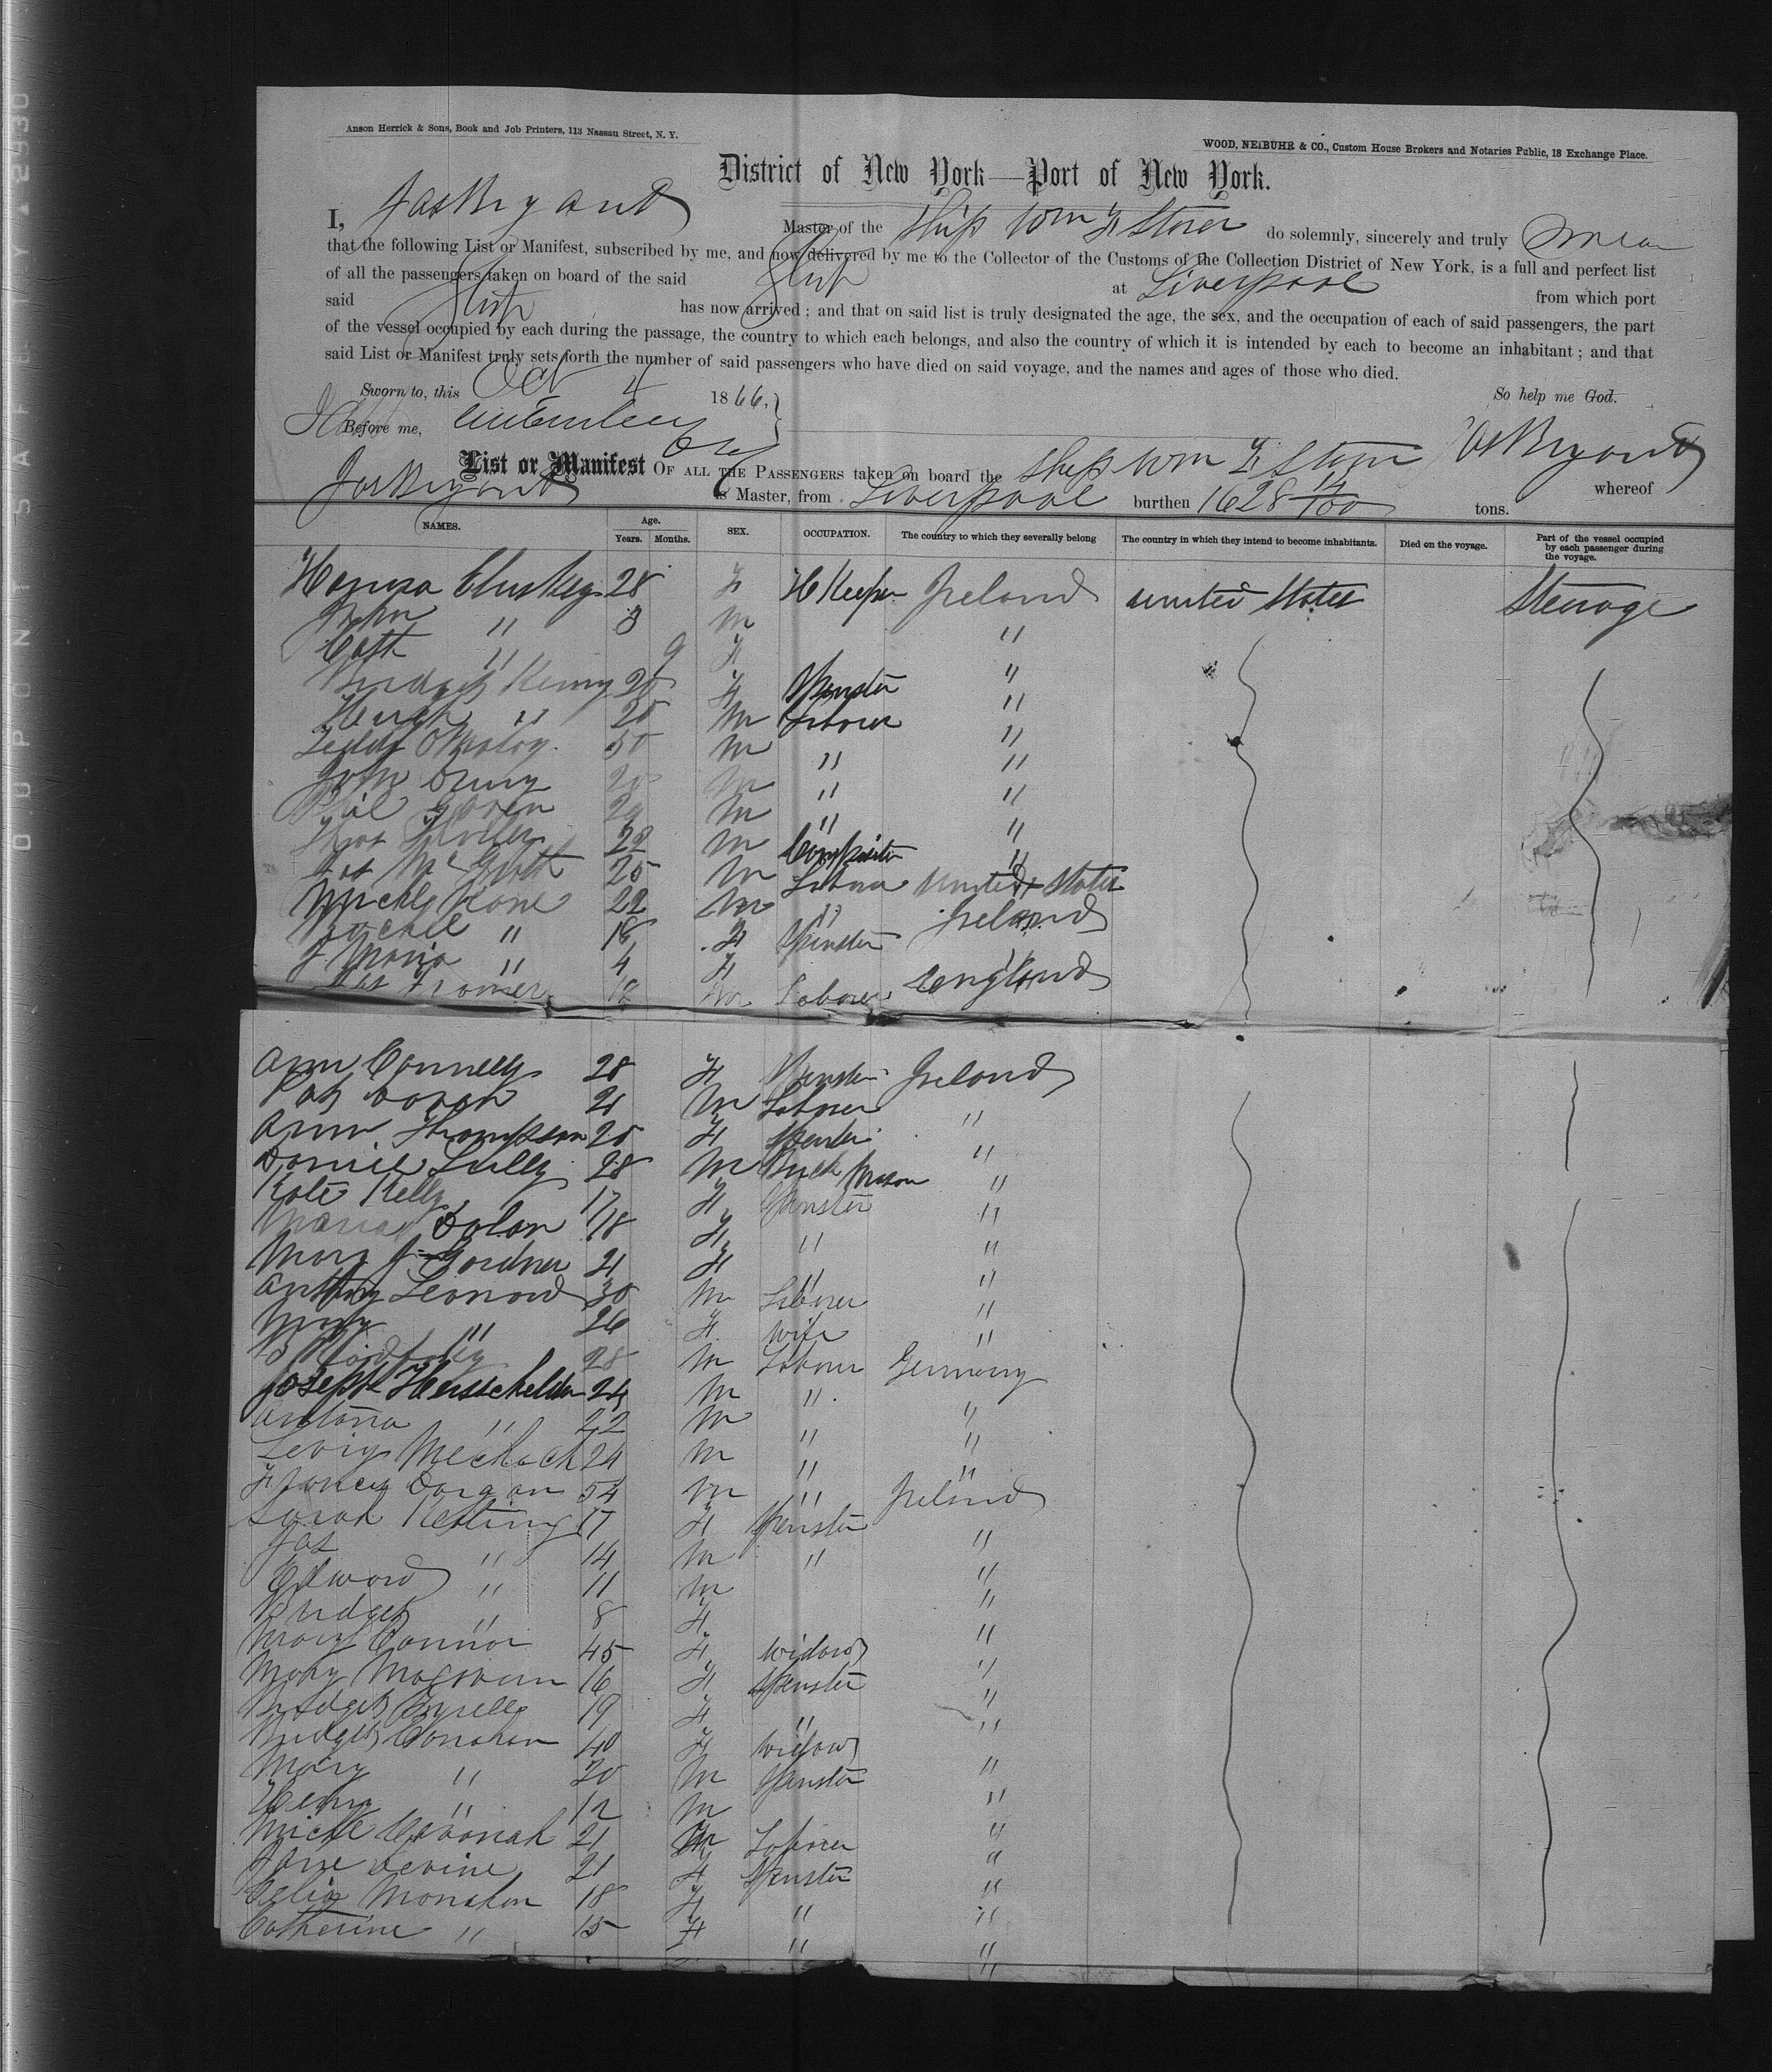 Anson Herrick & Sons, Book and Job Printers, 113 Nassau Street, N. Y.
WOOD, NEIBUHR & CO., Custom House Brokers and Notaries Public, 18 Exchange Place.
District of New York—Port of New York.
I, Jas Bryant Master of the Ship Wm F Storer do solemnly, sincerely and truly swear
that the following List or Manifest, subscribed by me, and now delivered by me to the Collector of the Customs of the Collection District of New York, is a full and perfect list
of all the passengers taken on board of the said Ship at Liverpool from which port
said Ship has now arrived; and that on said list is truly designated the age, the sex, and the occupation of each of said passengers, the part
of the vessel occupied by each during the passage, the country to which each belongs, and also the country of which it is intended by each to become an inhabitant; and that
said List or Manifest truly sets forth the number of said passengers who have died on said voyage, and the names and ages of those who died.
Sworn to, this Oct 4 1866, So help me God.
Before me, Jas Bryant
List or Manifest OF ALL THE PASSENGERS taken on board the Ship Wm F Storer whereof
Jas Bryant is Master, from Liverpool burthen 1628 14/100 tons.
NAMES. Age. Years. Months. SEX. OCCUPATION. The country to which they severally belong The country in which they intend to become inhabitants. Died on the voyage. Part of the vessel occupied by each passenger during the voyage.
Honora Cluskey 28 F H Keeper Ireland United States Steerage
John " 3 M "
Cath " 9 F "
Bridget Kenny 20 F Spinster "
Hugh " 20 M Laborer "
50 M " "
John 20 M " "
M " "
Thos 22 M Compositor "
Jas McGrath 25 M Laborer United States
Michl Kane 22 M " Ireland
Rachel " 18 F Spinster
Maria " 4 F England
Jas M Laborer
Ann Connelly 28 F Spinster Ireland
Pat Doran 21 M Laborer "
Ann Thompson 20 F Spinster "
Daniel Lully 28 M Brick Mason "
Kate Kelly 17 F Spinster "
Maria Dolan 18 F " "
Mary J Gardner 21 F " "
Anthony Leonard 30 M Laborer "
Mary " 26 F Wife "
28 M Labourer Germany
Joseph 24 M " "
Antonia " 22 M " "
24 M " "
Francis Dorgan 54 M " Ireland
Sarah Keating 17 F Spinster "
Jas " 14 M " "
Edward " 11 M "
Bridget " 8 F "
Mary Connor 45 F Widow "
Mary 16 F Spinster "
Bridget 19 F " "
Bridget Conahan 40 F Widow "
Mary " 20 M Spinster "
Henry " 12 M "
Michl 21 M Laborer "
Jane Devine 21 F Spinster "
Celia Monahan 18 F " "
Catherine " 15 F " "